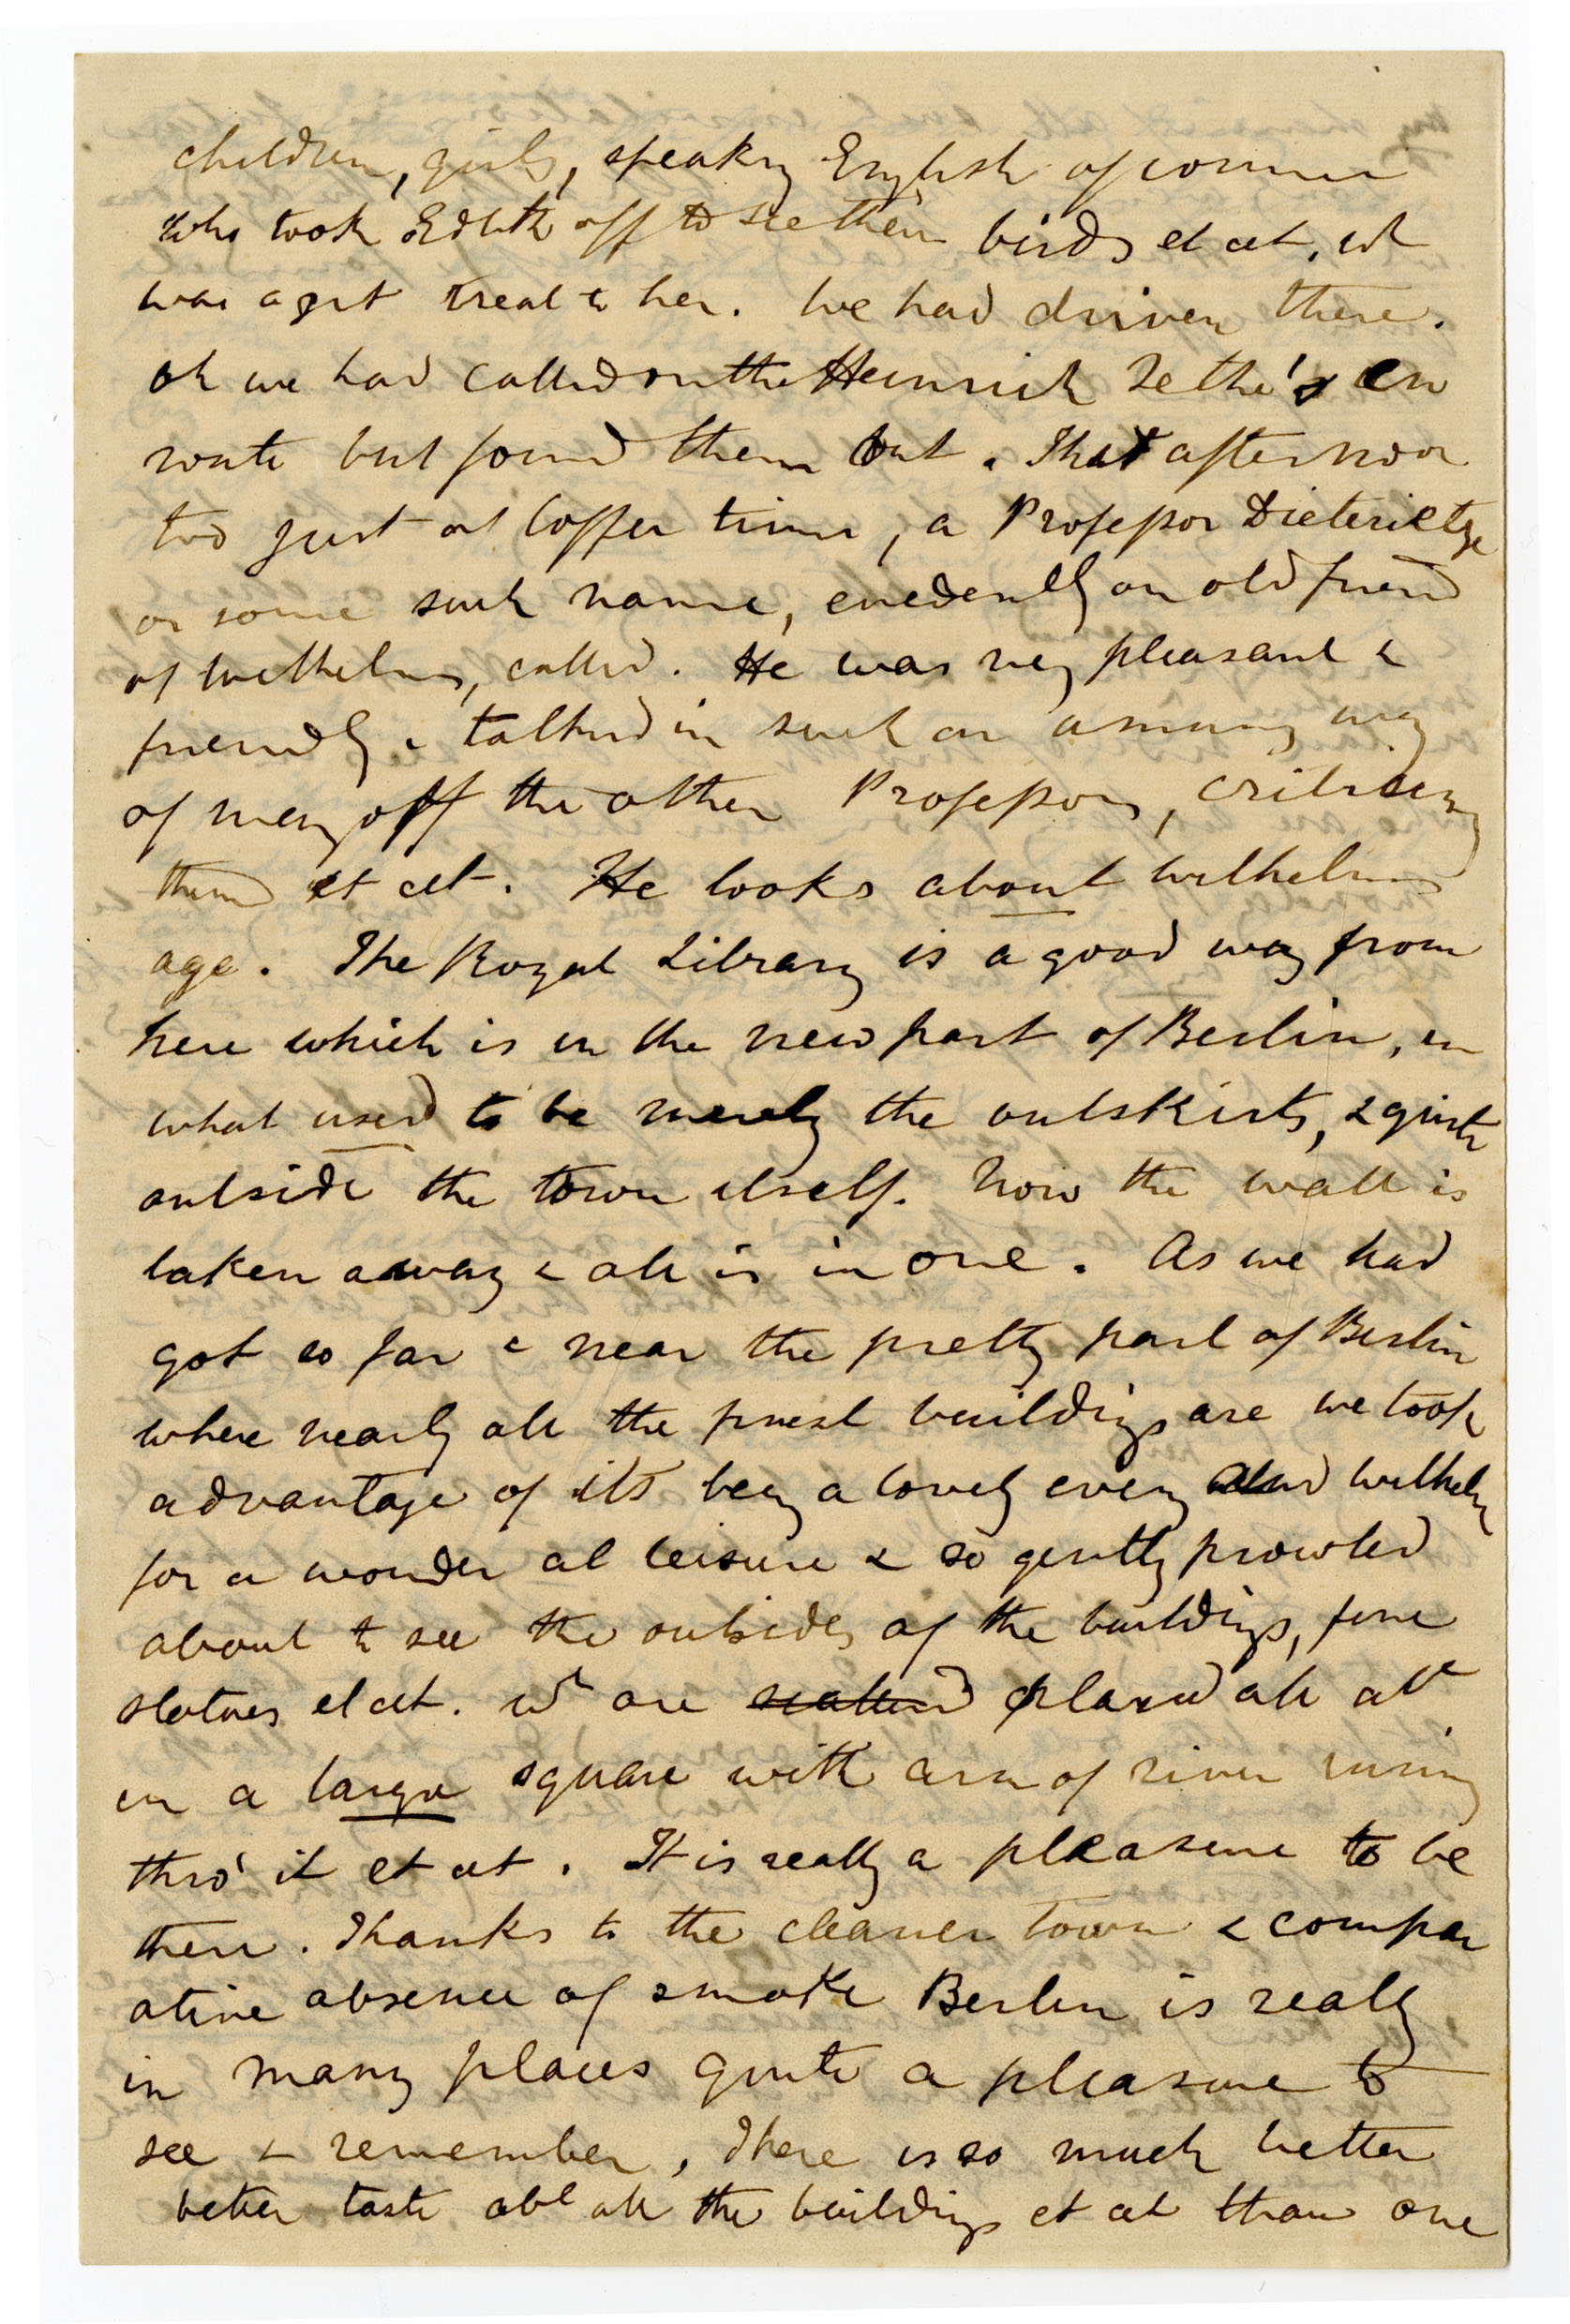 children, girls, speaking English of course
who took Edith off to see their birds et cet, wh
was a grt treat to her. We had driven there.
Oh we had called on the Heinrich Sethe's en
route but found them out. That afternoon
too just at Coffee time, a Professor Dieterictze
or some such name, evidently an old friend
of Wilhelms, called. He was very pleasant &
friendly & talked in such an amusing way
of many of the other Professors, criticising
them et cet. He looks about Wilhelms
age. The Royal Library is a good way from
here which is in the new part of Berlin, in
what used to be merely the outskirts, & quite
outside the town itself. Now the wall is
taken away & all is in one. As we had
got so far & near the pretty part of Berlin
where nearly all the finest buildings are we took
advantage of its being a lovely evening and Wilhelm
for a wonder at leisure & so gently prowled
about to see the outsides of the buildings, fine
statues et cet. wh are placed all abt
in a large square with arm of river running
thro' it et cet. It is really a pleasure to be
there. Thanks to the cleaner town & compar
ative absence of smoke Berlin is really
in many places quite a pleasure to
see & remember, There is so much better
better taste abt all the buildings et cet than one